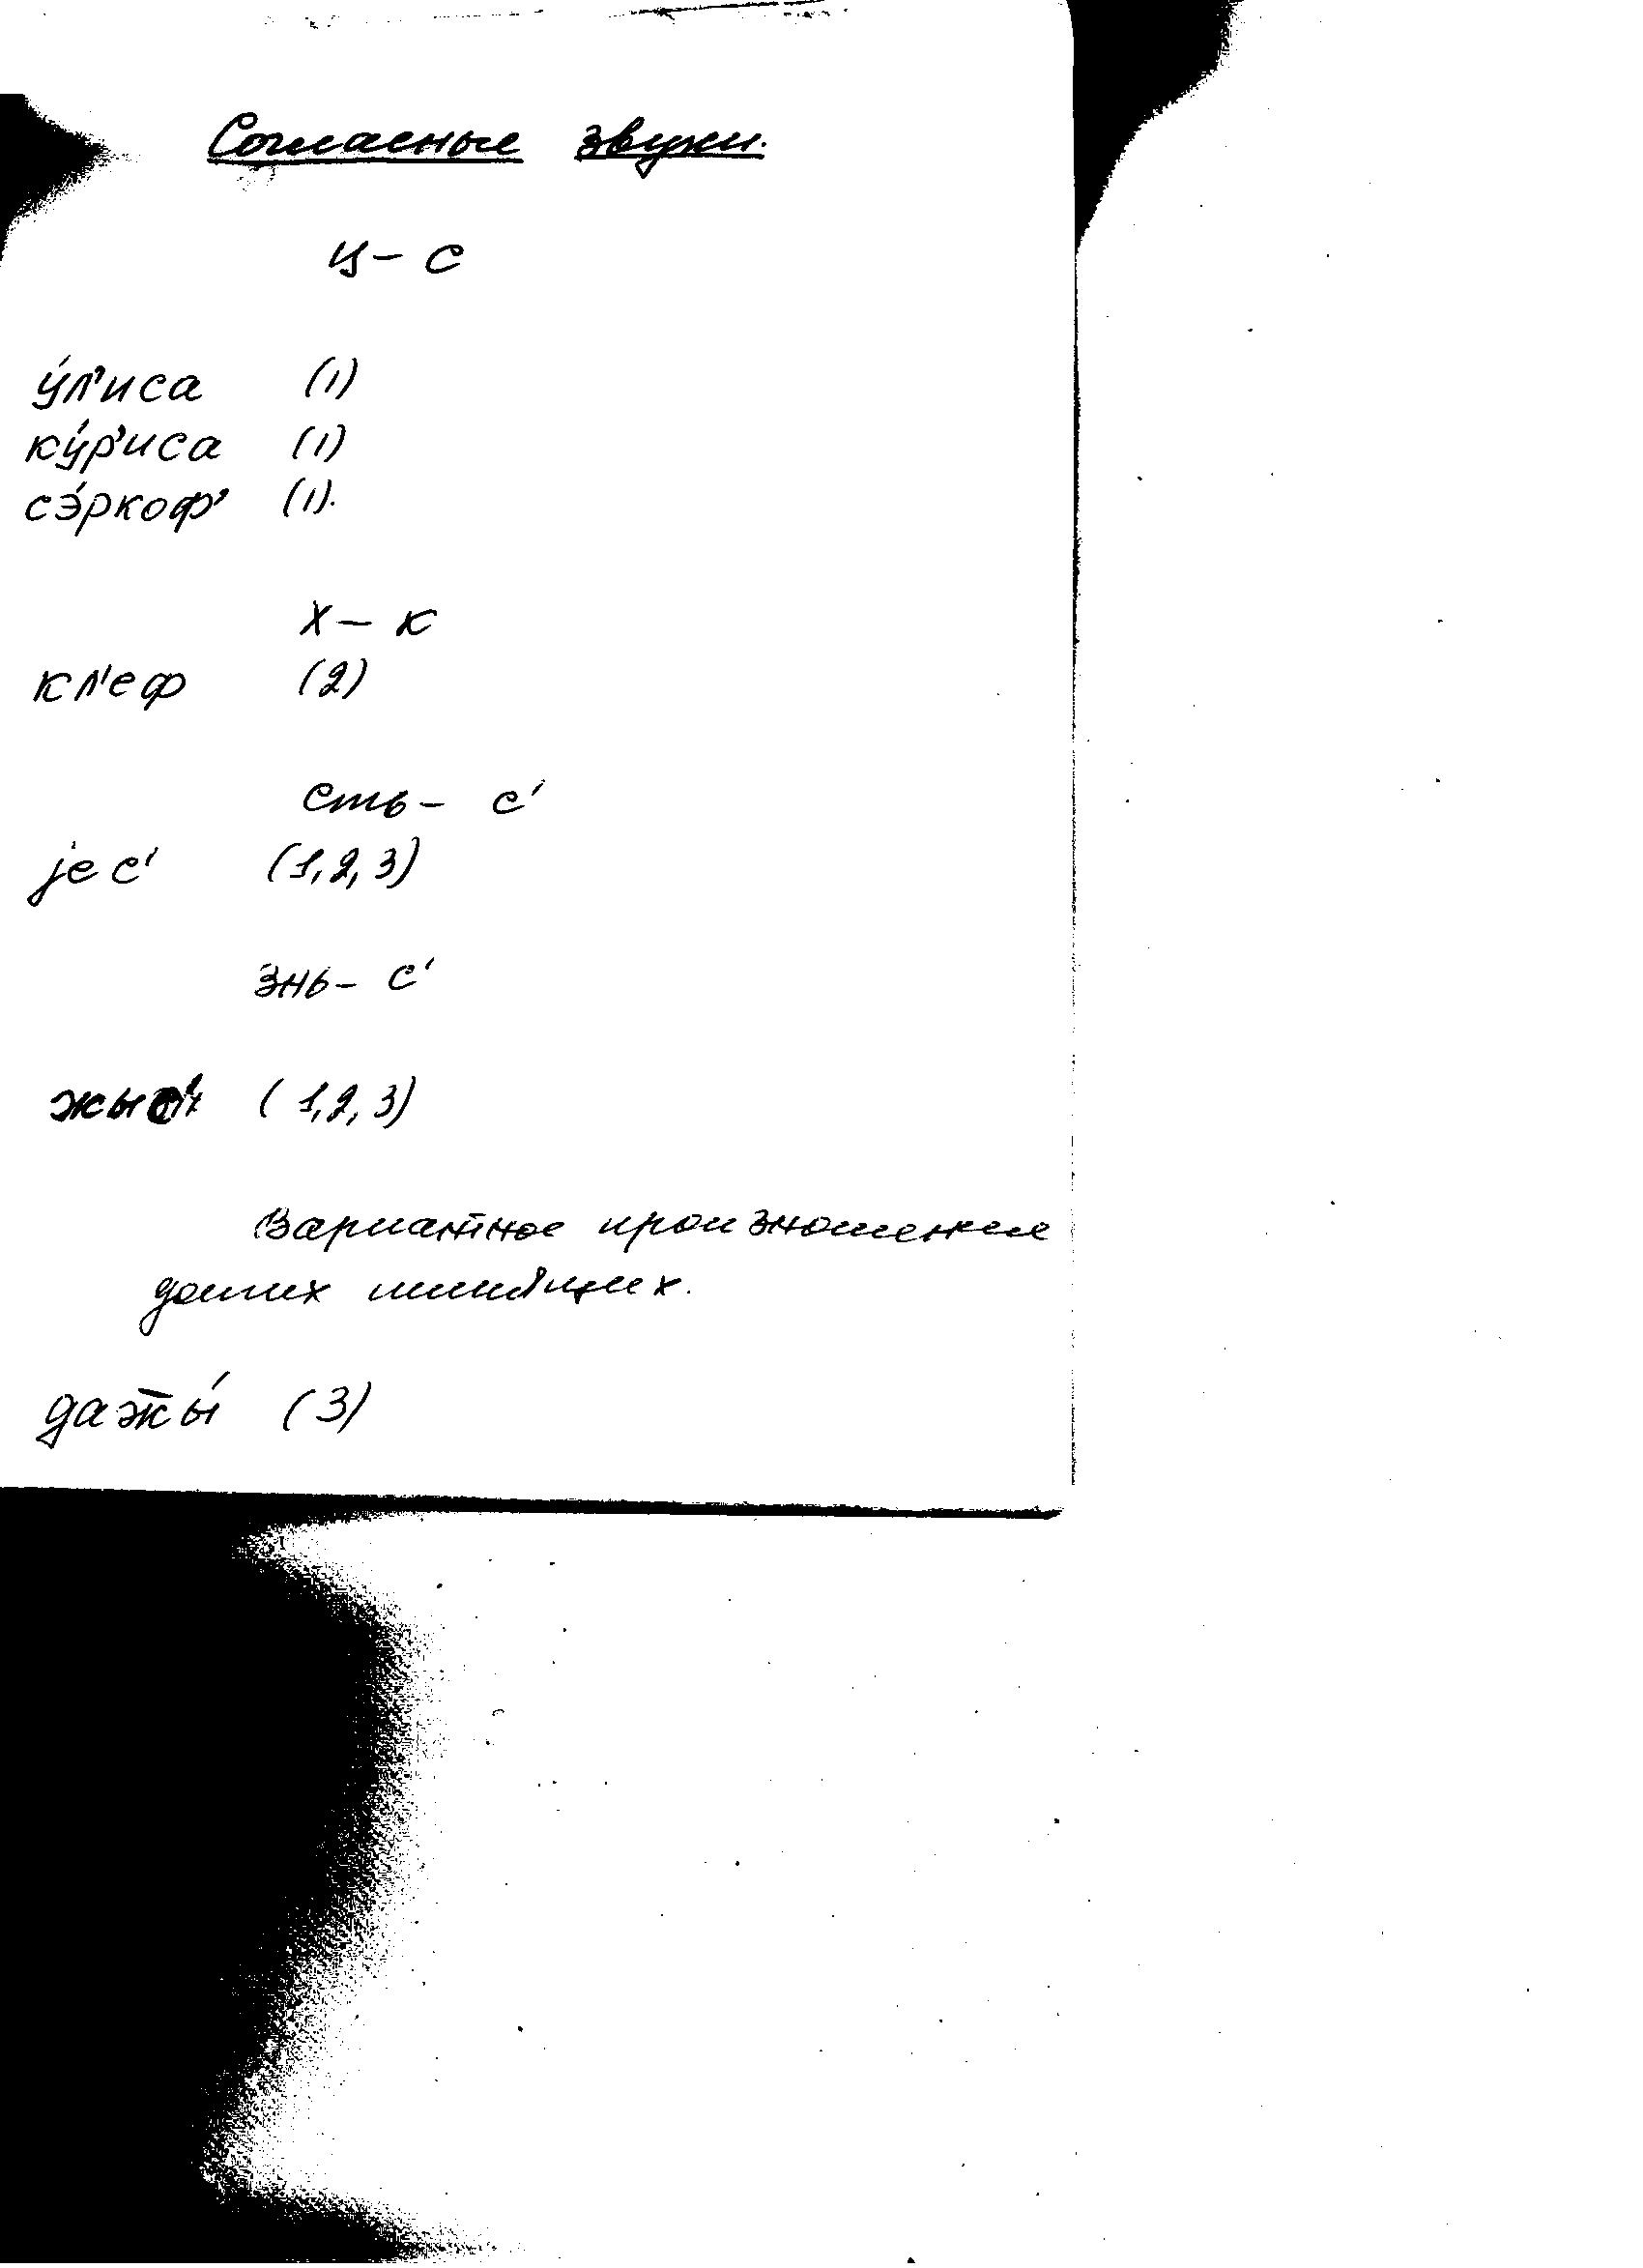 Согласные звуки.
ц – с
у́л'иса (1)
ку́р'иса (1)
сэ́ркоф' (1).
х – к
кл'еф (2)
сть – с'
jес' (1, 2, 3)
знь – с'
жыс' (1, 2, 3)
Вариантное произношение
долгих шипящих.
даж̄ы́ (3)